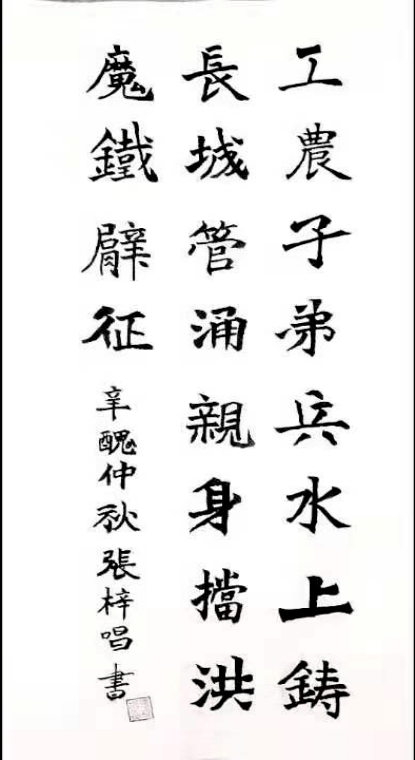 工農子弟兵水上鑄
長城管涌親身擋洪
魔鐵臂征
辛醜仲秋張梓唱書